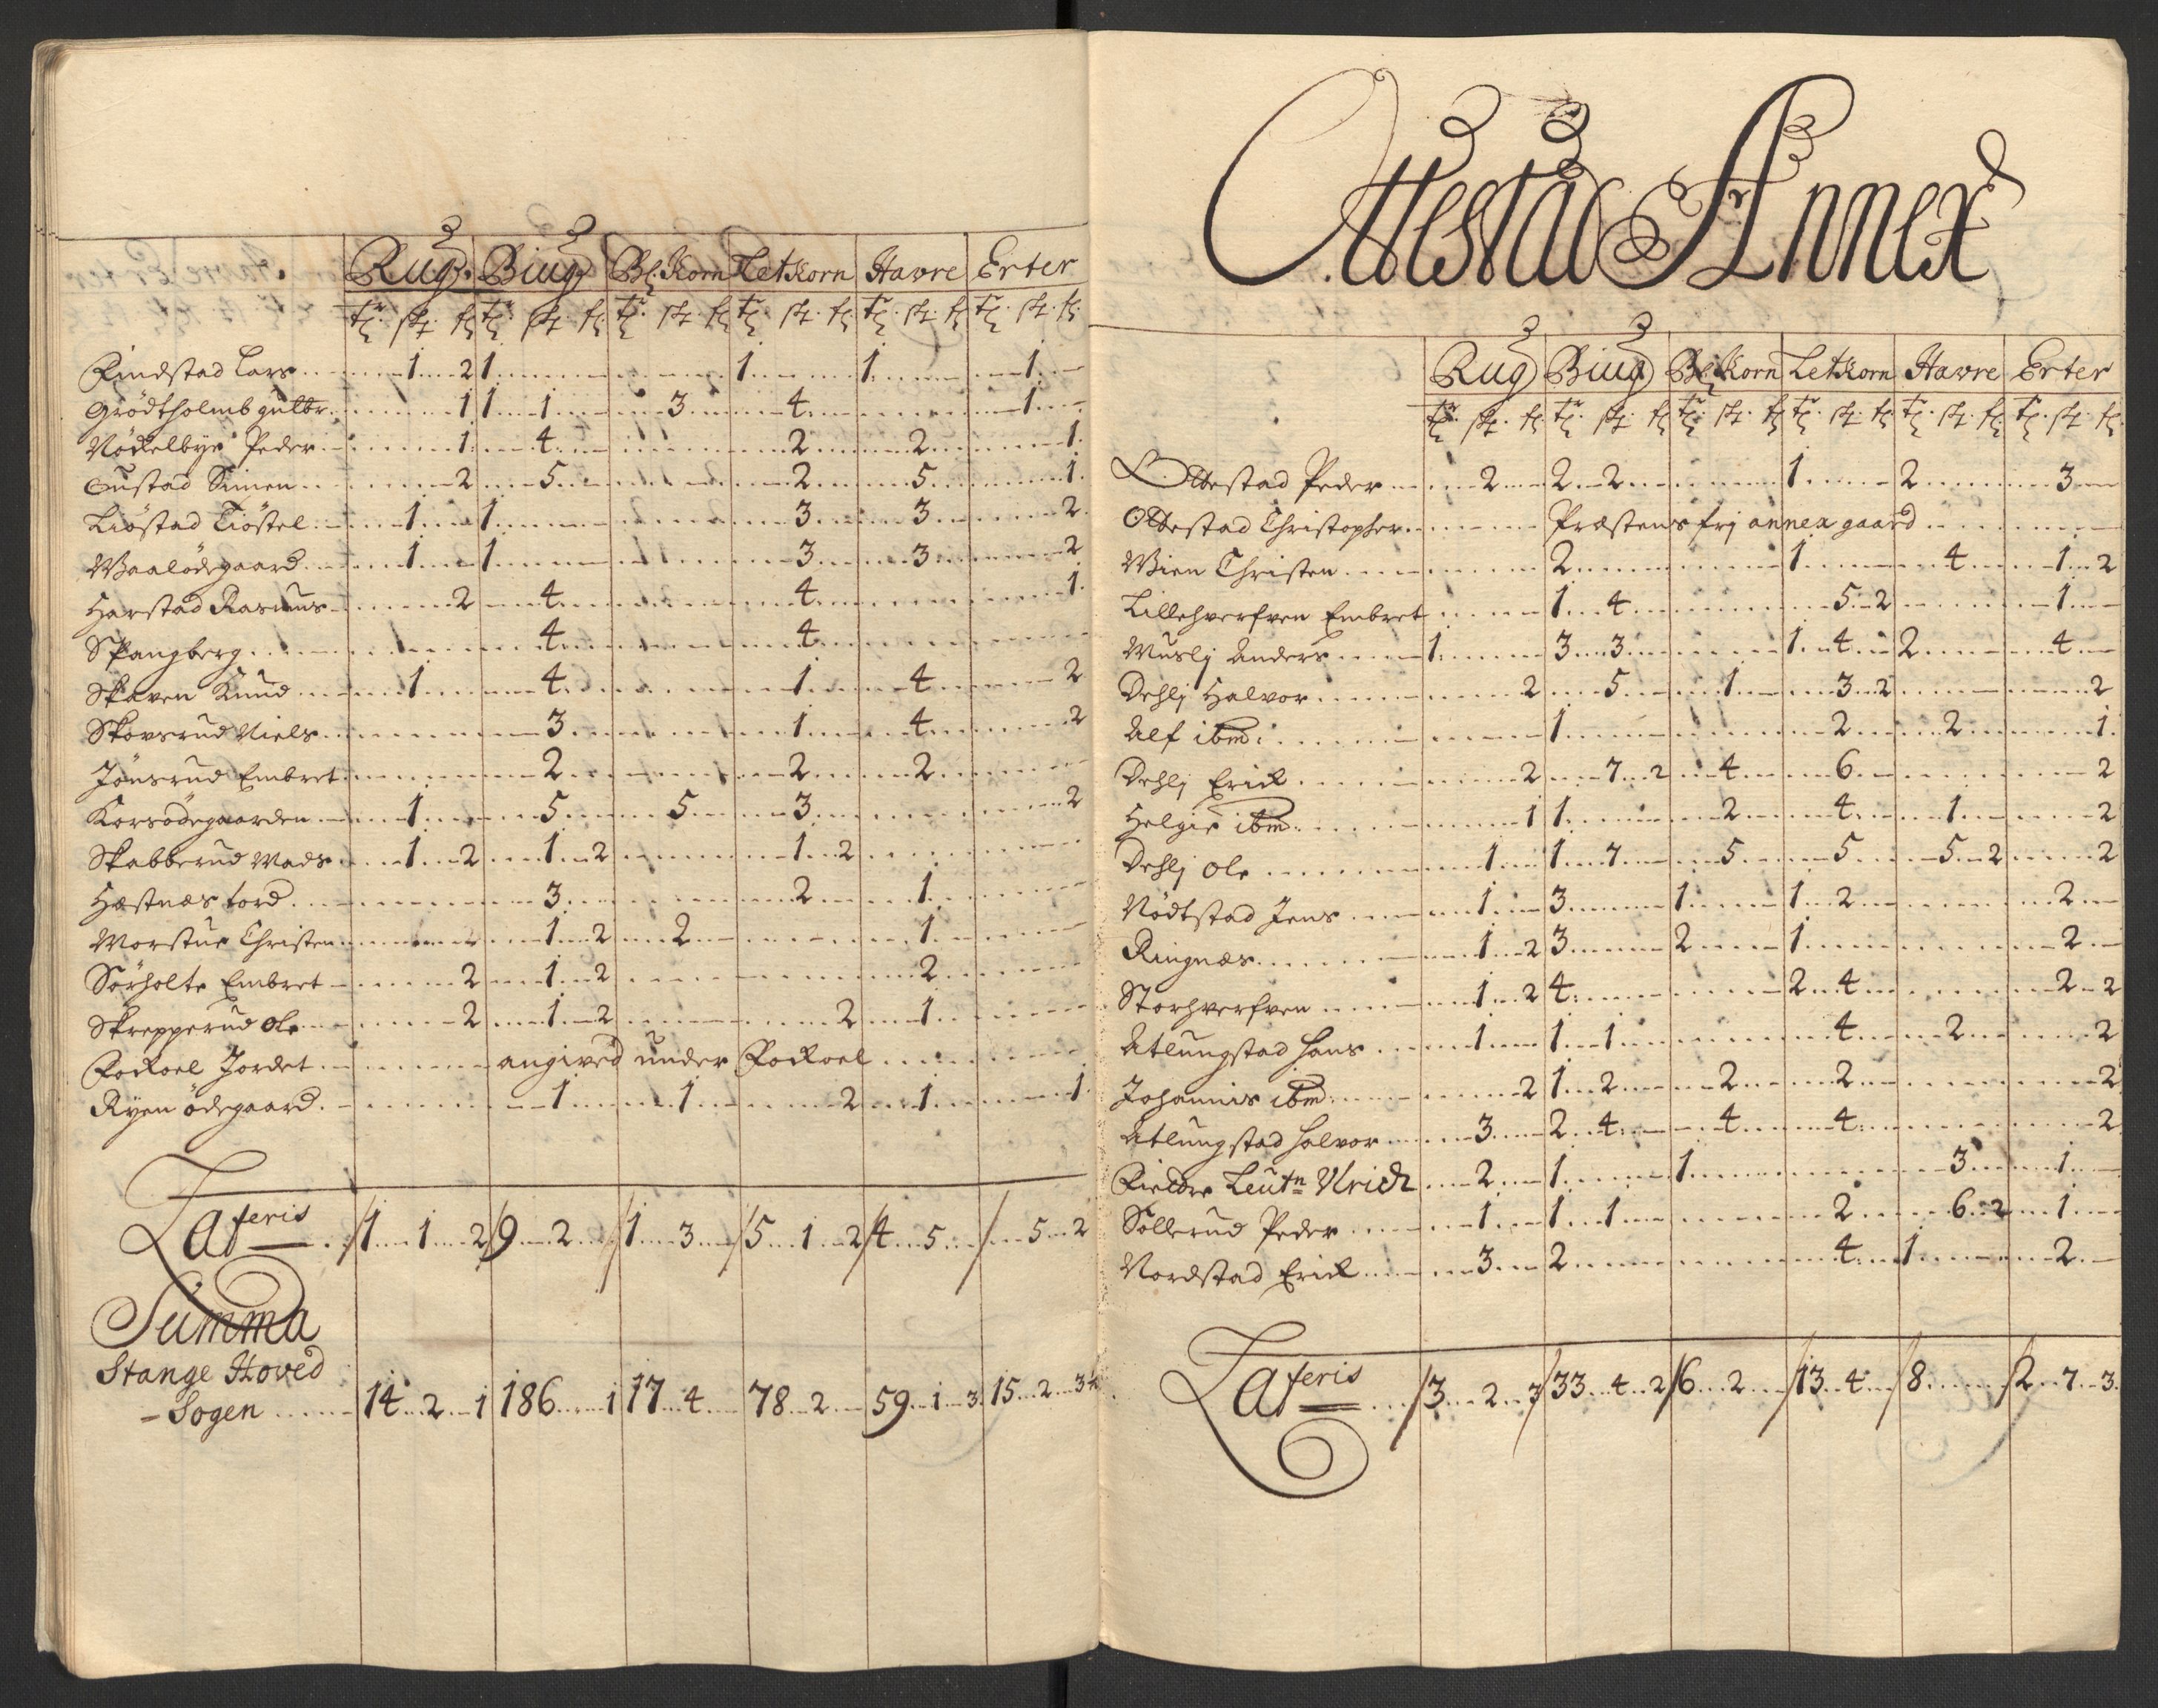 Rug Biug Bl. Korn Letkorn Havre Erter
Rindstad Lars 1 2 1 1 1 1
Grödtholmb gulbr. 1 1 1 3 4 1
Nökelbye Peder 1 4 2 2 1
Gustad Simen 2 5 2 5 1
Liöstad Tiöstel 1 1 3 3 2
Waalödegaard 1 1 3 3 2
Harstad Rasmus 2 4 4 1
Spangberg 4 4
Skaven Knud 1 4 1 4 2
Skovsrud Niels 3 1 4 2
Jönsrud Embret 2 2 2
Korsödegaarden 1 5 5 3 2
Skabberud Mads 1 2 1 2 1 2
Hæstnæs tord 3 2 1
Morstue Christen 1 2 2 1
Sörholte Embret 2 1 2 2
Skrepperud Ole 2 1 2 2 1
Rokoel Jordet angived under Rokoel
Ryen ödegaard 1 1 2 1 1
Lateris /1 1 2 /9 2 /1 3 /5 1 2 /4 5 / 5 2
Summa
Stange Hoved
-Sogen 14 2 1 186 1 17 4 78 2 59 1 3 15 2 3
Ottestad Annex
Rug Biug Bl. Korn Letkorn Havre Erter
Ottestad Peder 2 2 2 1 2 3
Ottestad Christopher Præstens frj annex gaard
Wien Christen 2 1 4 1 2
Lillehverfven Embret 1 4 5 2 1
Muslj Anders 1 3 3 1 4 2 4
Dehlj Halvor 2 5 1 3 2 2
Alf ibm: 1 2 2 1
Dehlj Erick 2 7 2 4 6 2
Helgie ibm: 1 1 2 4 1 2
Dehlj Ole 1 1 7 5 5 5 2 2
Nödtstad Jens 1 3 1 1 2 2
Ringnæs 1 2 3 2 1 2
Storhverfven 1 2 4 2 4 2 2
Atlungstad Hans 1 1 1 4 2 2
Johannis ibm: 2 1 2 2 2 2
Atlungstad Halvor 3 2 4 4 4 2
Leutn Ulrich 2 1 1 3 1
Sollerud Peder 1 1 1 2 6 2 1
Nordstad Erick 3 2 4 1 2
Lateris /3 2 3 /33 4 2 /6 2 /13 4 /8 /2 7 3